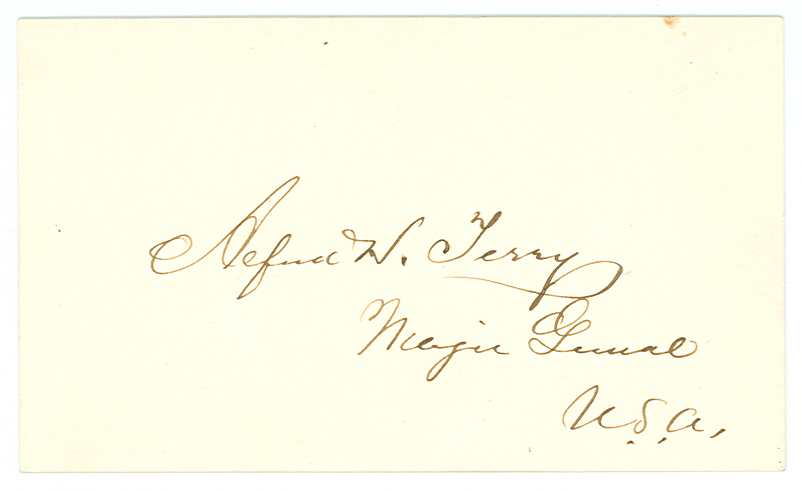 Alfred H. Terry
Major General
U.S.A.